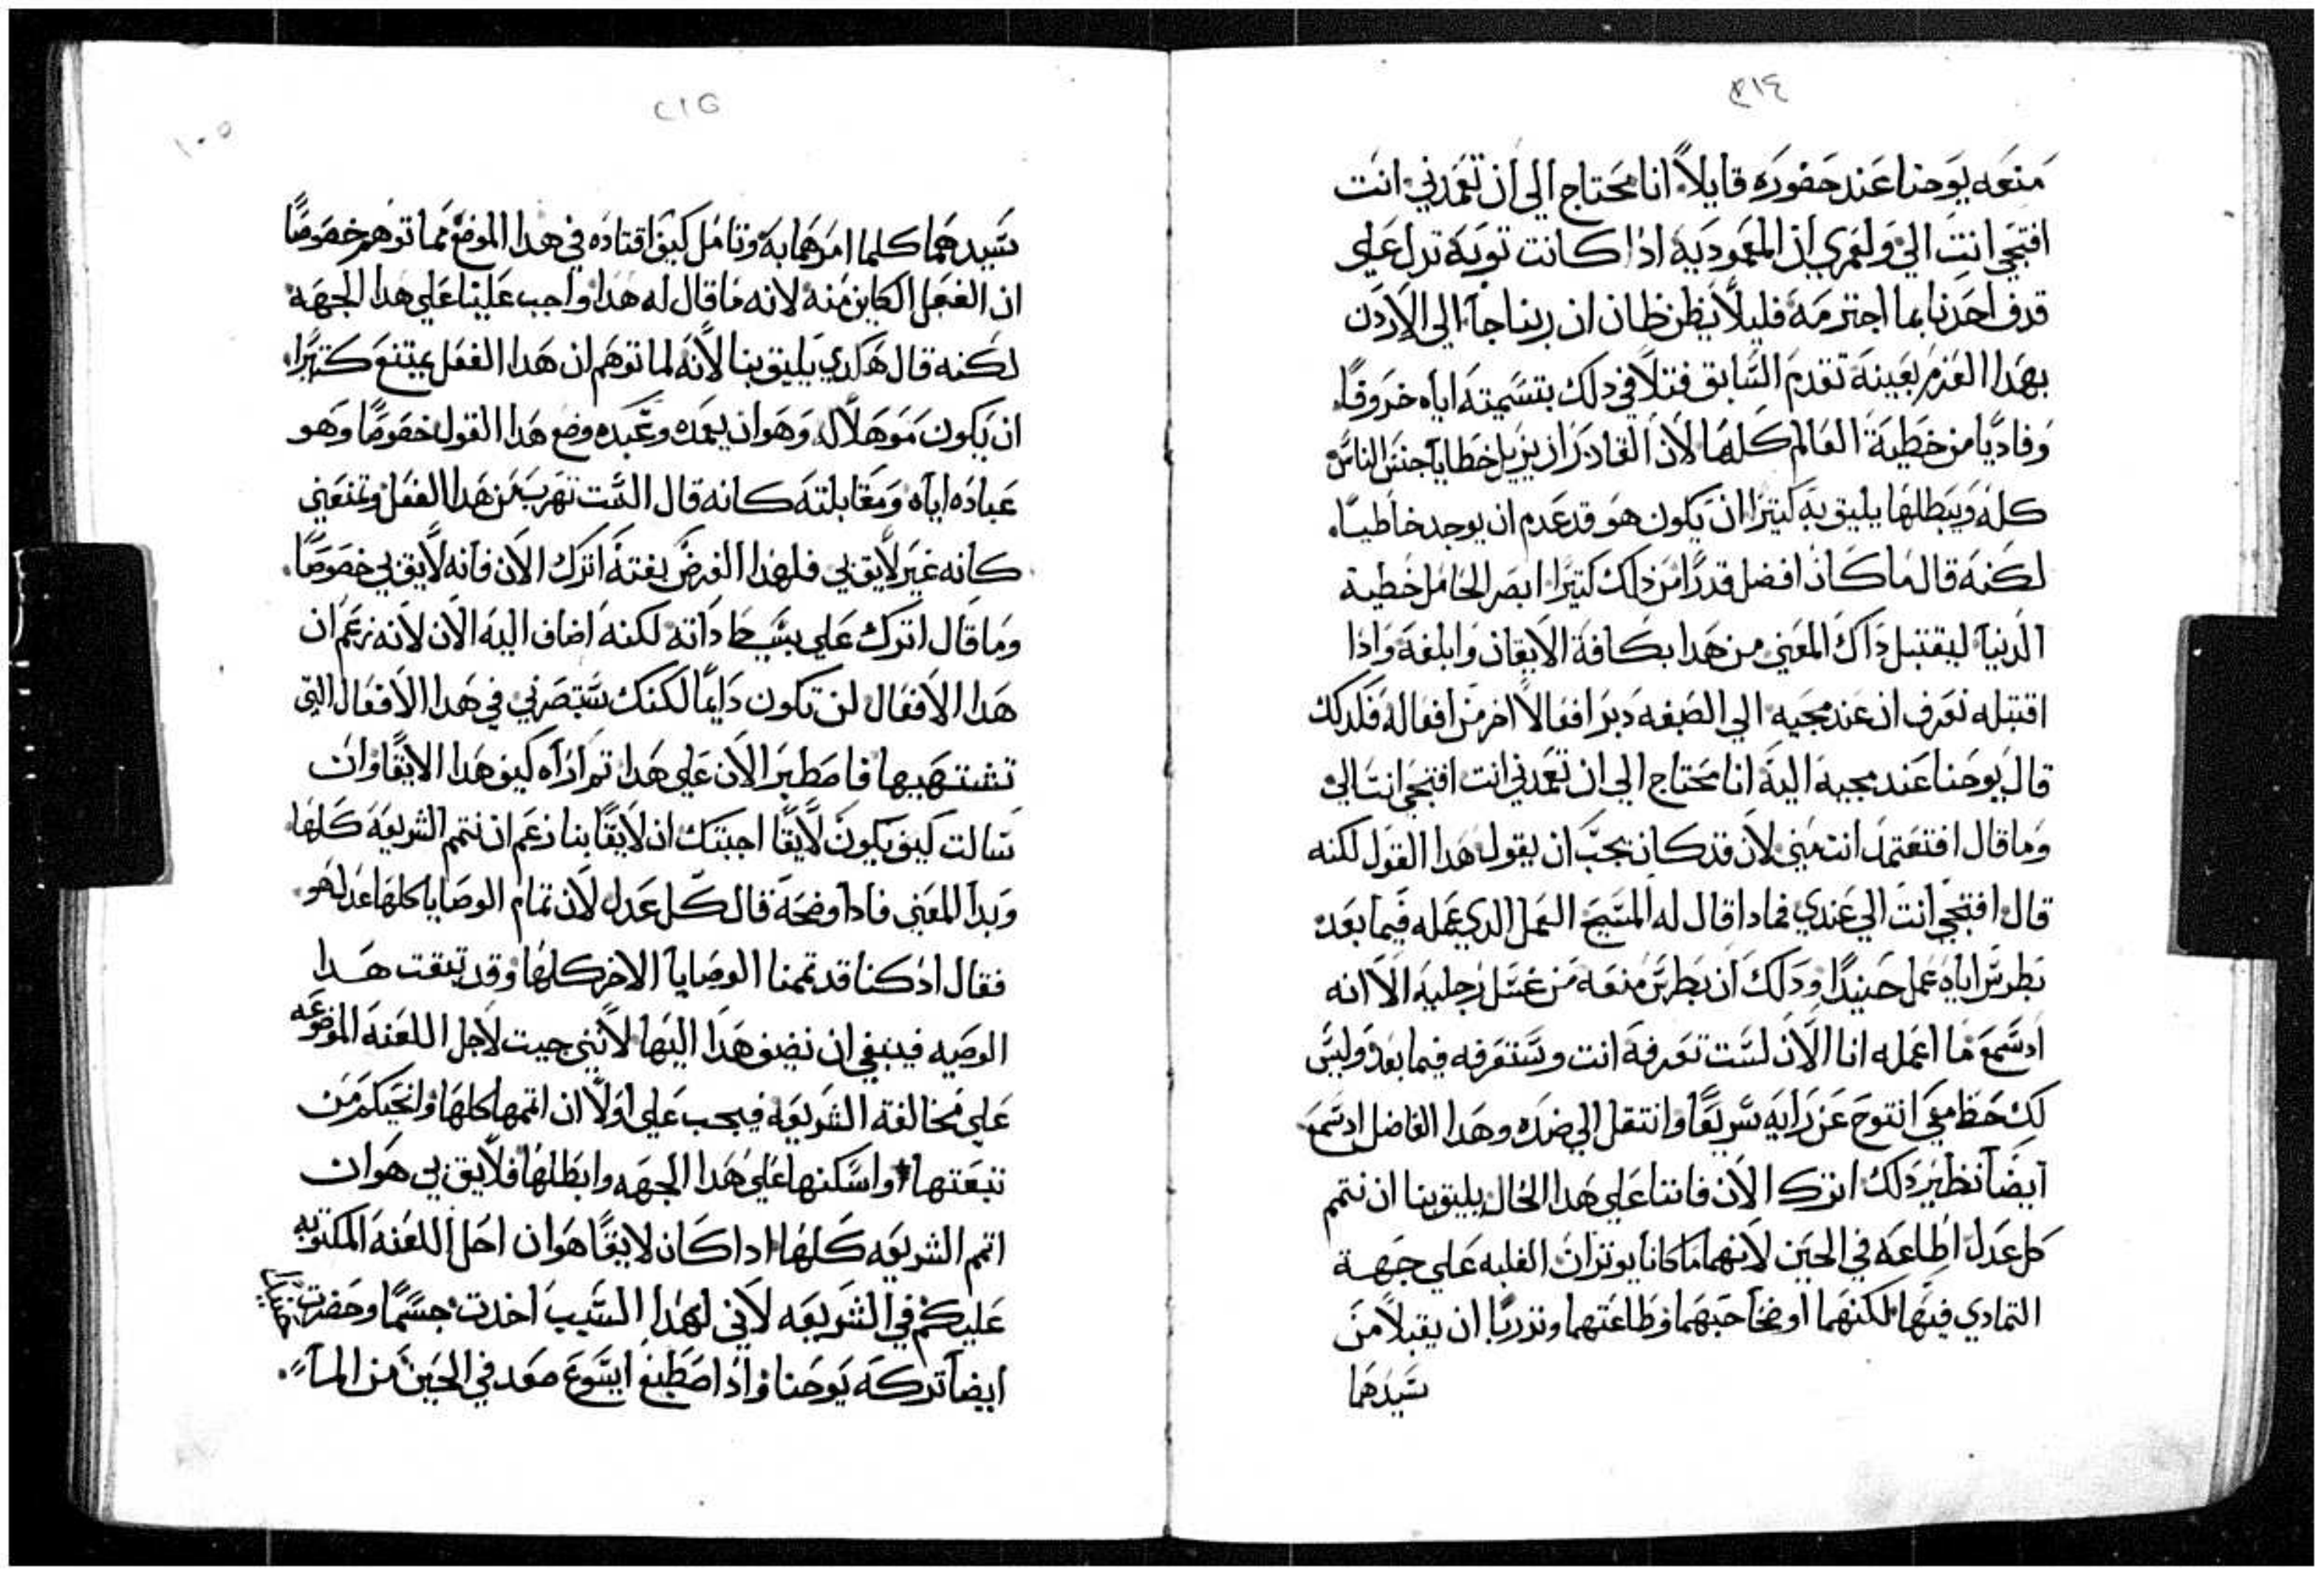 ٣١٤
منعه يوحنا عند حضوره قايلاً انا محتاج الي ان تعمدني انت
افتجي انت الي ولعمري ان المعموديه اذا كانت توبة تدل علي
قدف احدنا بما اجترمه فليلا يظن ظان ان ربنا جآ الي الاردن
بهدا العزم بعينه تقدم السابق فتلافي دلك بتسميته اياه خروفًا
وفاديًا من خطية العالم كلها لان القادر ان يزيل خطايا جنس الناس
كله ويبطلها يليق به كتيرا ان يكون هو قد عدم ان يوجد خاطيًا
لكنه قال ما كان افضل قدرًا من دلك كتيرًا ابصر الحامل خطية
الدنيا ليقتبل داك المعني من هدا بكافة الايقان وابلغه وادا
اقتبله نعرف ان عند مجيه الي الصبغه دبر افعالاً اخر من افعاله فلدلك
قال يوحنا عند مجيه اليه انا محتاج الي ان تعمدني انت افتجي انت الي
وما قال افتعتمد انت مني لان قد كان يجب ان يقول هدا القول لكنه
قال افتجي انت الي عندي فمادا قال له المسيح العمل الدي عمله فيما بعد
بطرس اياه عمل حنيدا ودلك ان بطرس منعه من غسل رجليه الا انه
اد سمع ما اعمله انا الان لست تعرفه انت وستعرفه فيما بعد وليس
لك حظ معي انتوح عن رايه سريعًا وانتقل الي ضده وهدا الفاضل اد سمع
ايضًا نظير دلك اترك الان فاننا علي هدا الحال يليق بنا ان نتمم
كل عدل اطاعه في الحين لانهما ما كانا يوتران الغلبه علي جهة
التمادي فيها لكنهما اوضحا حبهما وطاعتهما وتدربا ان يقبلا من
سيدهما
٢١٥
١٠٥
سيدهما كلما امرهما به وتامل كيف اقتاده في هدا الموضع مما توهم خصوصًا
ان الفعل الكاين منه لانه ما قال له هدا واجب علينا علي هدا الجهه
لكنه قال هكدي يليق بنا لانه لما توهم ان هدا الفعل يمتنع كتيرًا
ان يكون موهلاً له وهو ان يعمده وعبده وضع هدا القول خصوصًا وهو
عباده اياه ومقابلته كانه قال الست تهرب من هدا الفعل وتمنعني
كانه غير لايق بي فلهدا الغرض بغتة اترك الان فانه لايق بي خصوصًا
وما قال اترك علي بسيط داته لكنه اضاف اليه الان لانه زعم ان
هدا الافعال لن تكون دايمًا لكنك ستبصرني في هدا الافعال التي
تشتهيها فاصطبر الان علي هدا تم اراه كيف هدا لايقًا وان
سالت كيف يكون لايقًا اجبتك ان لايقًا بنا زعم ان نتمم الشريعه كلها
وبدا المعني فادا وضحه قال كل عدل لان تمام الوصايا كلها عدل هو
فقال اد كنا قد تممنا الوصايا الاخر كلها وقد تبقت هدا
الوصيه فينبغي ان نضيف هدا اليها لانني جيت لاجل اللعنه الموضوعه
علي مخالفة الشريعه فيجب علي اولاً ان اتمها كلها وانجيكم من
تبعتها واسكنها علي هدا الجهه وابطلها فلايق بي هو ان
اتم الشريعه كلها ادا كان لايقًا هو ان احل اللعنه المكتوبه
عليكم في الشريعه لاني لهدا السبب اخدت جسمًا وحضرت
ايضا تركه يوحنا واد اصطبغ ايسوع صعد في الحين من المآ